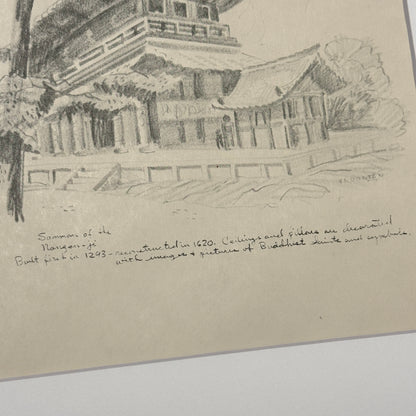 Sammon of the
Nanzen-ji
Built first in 1293 - reconstructed in 1620. Ceilings and pillars are decorated
with images & pictures of Buddhist saints and symbols.